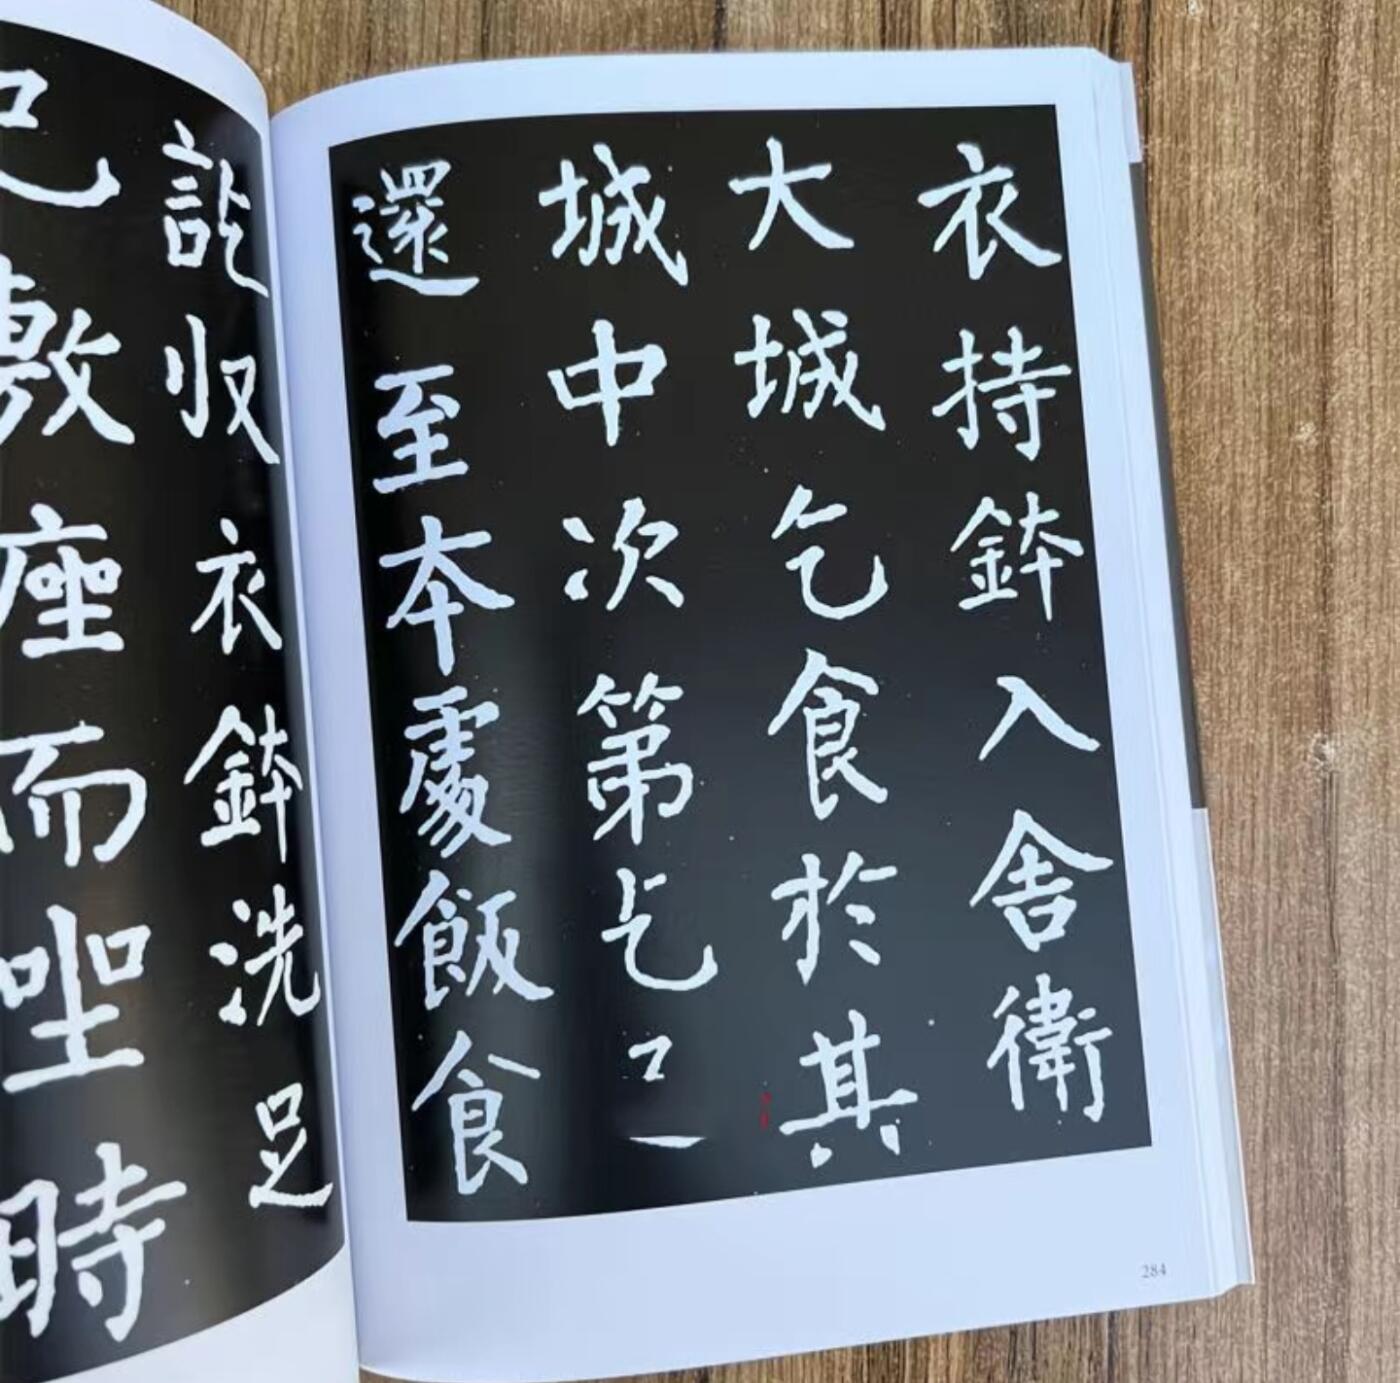 衣持鉢入舍衛
大城乞食於其
城中次第乞
還至本處飯食
訖収衣鉢洗足
已敷座而坐時
284